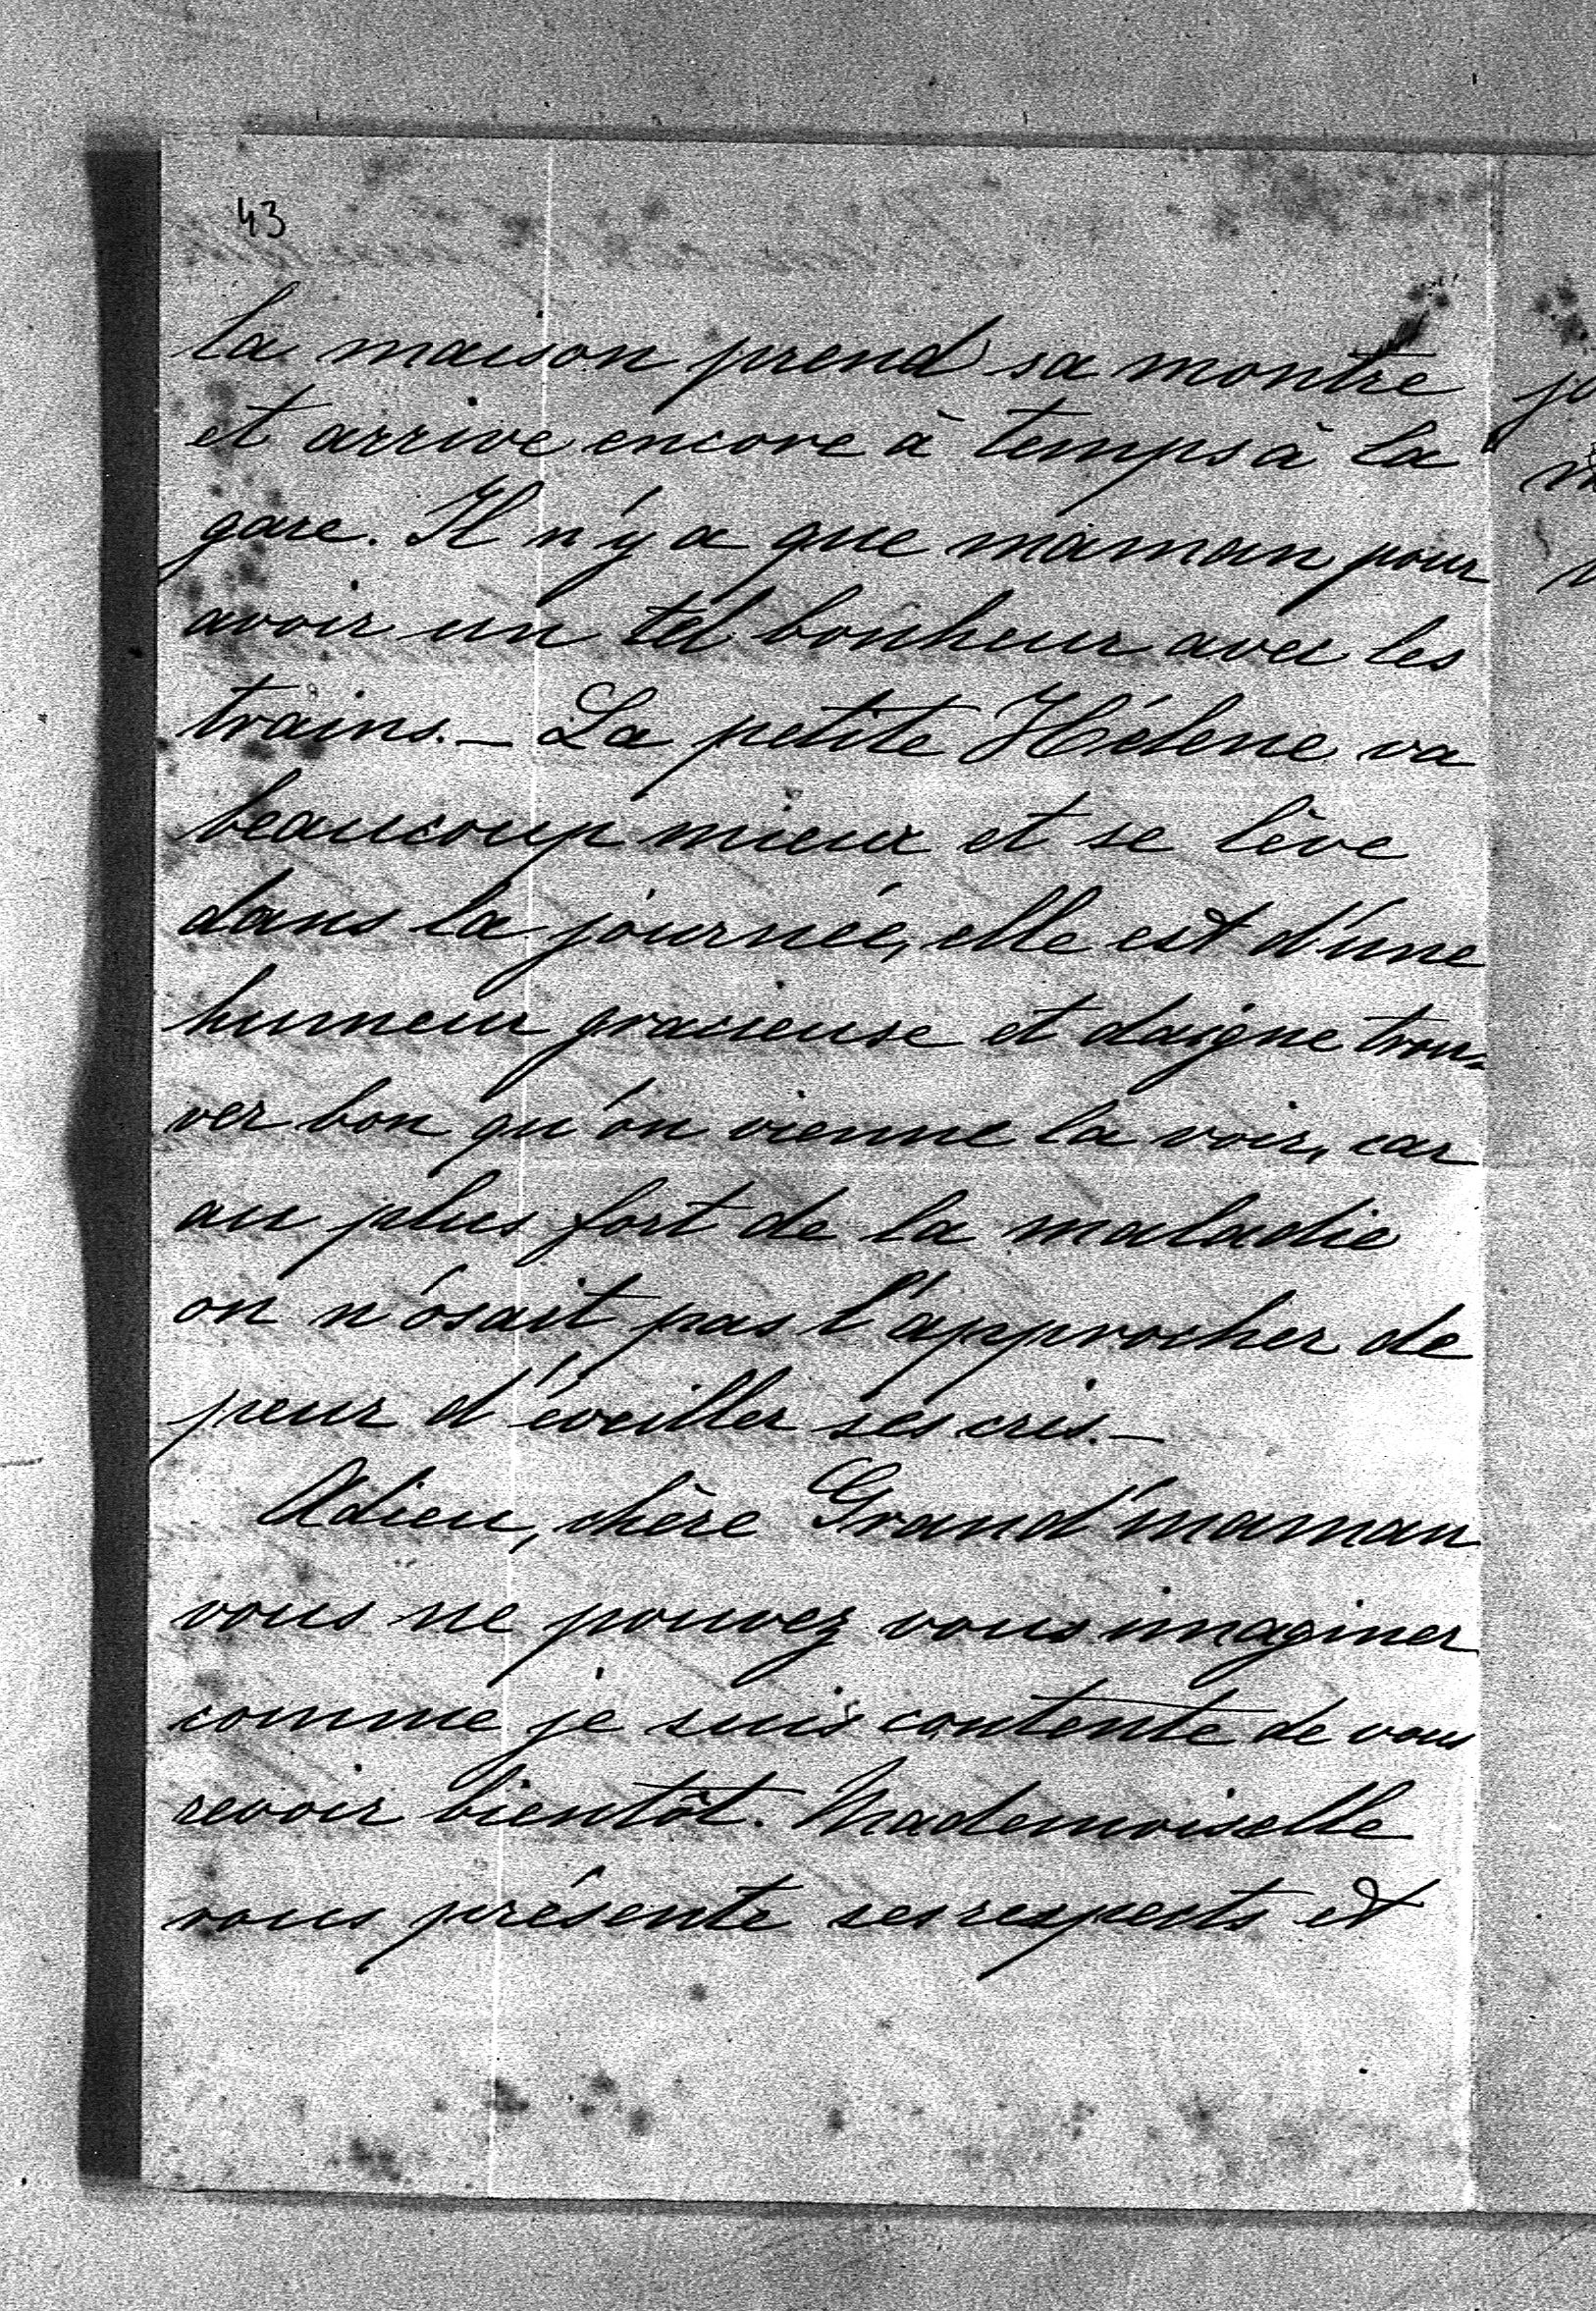 43
la maison prend sa montre
et arrive encore à temps à la
gare. Il n'y a que maman pour
avoir un tel bonheur avec les
trains._ La petite Hélène va
beaucoup mieux et se lève
dans la journée, elle est d'une
humeur gracieuse et daigne trou-
ver bon qu'on vienne la voir, car
au plus fort de la maladie
on n'osait pas l'approcher de
peur d'éveiller ses cris._
Adieu, chère Grand'maman
vous ne pouvez vous imaginer
comme je suis contente de vous
revoir bientôt. Mademoiselle
vous présente ses respects et